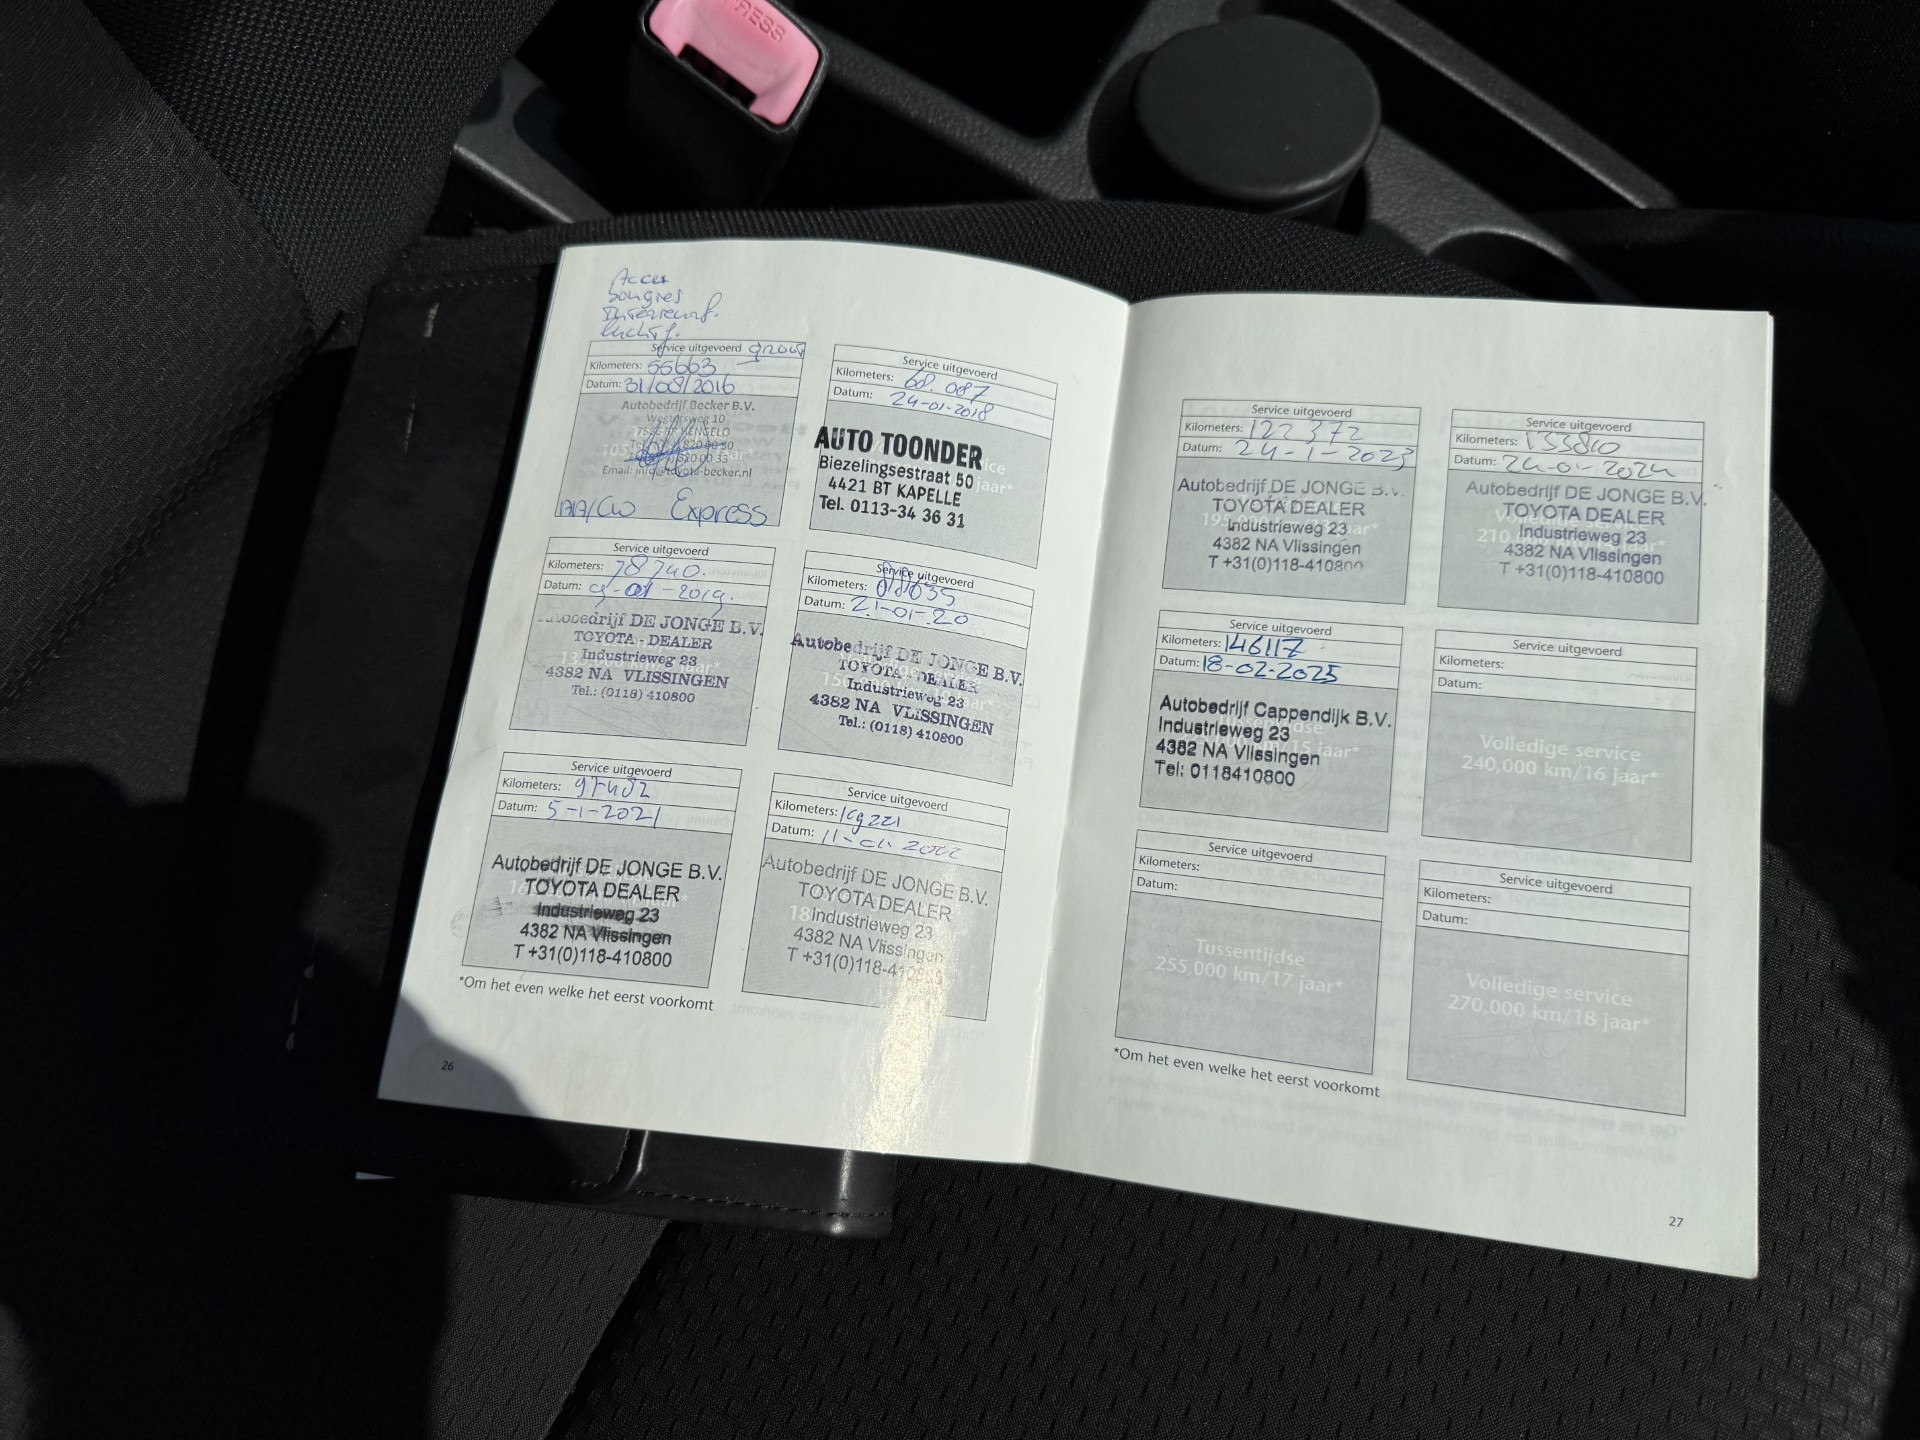 PRESS
Service uitgevoerd groot
Kilometers: 55663
Datum: 31/08/2016
Autobedrijf Becker B.V.
10
HENGELO
820 00 30
820 00 33
Email: info@toyota-becker.nl
Express
Service uitgevoerd
Kilometers: 68.087
Datum: 24-01-2018
AUTO TOONDER
Biezelingsestraat 50
4421 BT KAPELLE
Tel. 0113-34 36 31
Service uitgevoerd
Kilometers: 78740.
Datum: 9-01-2019.
Autobedrijf DE JONGE B.V.
TOYOTA - DEALER
Industrieweg 23
4382 NA VLISSINGEN
Tel.: (0118) 410800
Service uitgevoerd
Kilometers: 88635
Datum: 21-01-20
Autobedrijf DE JONGE B.V.
TOYOTA - DEALER
Industrieweg 23
4382 NA VLISSINGEN
Tel.: (0118) 410800
Service uitgevoerd
Kilometers: 97482
Datum: 5-1-2021
Autobedrijf DE JONGE B.V.
TOYOTA DEALER
Industrieweg 23
4382 NA Vlissingen
T +31(0)118-410800
Service uitgevoerd
Kilometers: 109221
Datum: 11-01-2022
Autobedrijf DE JONGE B.V.
TOYOTA DEALER
Industrieweg 23
4382 NA Vlissingen
T +31(0)118-410800
*Om het even welke het eerst voorkomt
26
Service uitgevoerd
Kilometers: 122372
Datum: 24-1-2023
Autobedrijf DE JONGE B.V.
TOYOTA DEALER
Industrieweg 23
4382 NA Vlissingen
T +31(0)118-410800
Service uitgevoerd
Kilometers: 133810
Datum: 24-01-2024
Autobedrijf DE JONGE B.V.
TOYOTA DEALER
Industrieweg 23
4382 NA Vlissingen
T +31(0)118-410800
Service uitgevoerd
Kilometers: 146117
Datum: 18-02-2025
Autobedrijf Cappendijk B.V.
Industrieweg 23
4382 NA Vlissingen
Tel: 0118410800
Service uitgevoerd
Kilometers:
Datum:
Volledige service
240,000 km/16 jaar*
Service uitgevoerd
Kilometers:
Datum:
Tussentijdse
255,000 km/17 jaar*
Service uitgevoerd
Kilometers:
Datum:
Volledige service
270,000 km/18 jaar*
*Om het even welke het eerst voorkomt
27